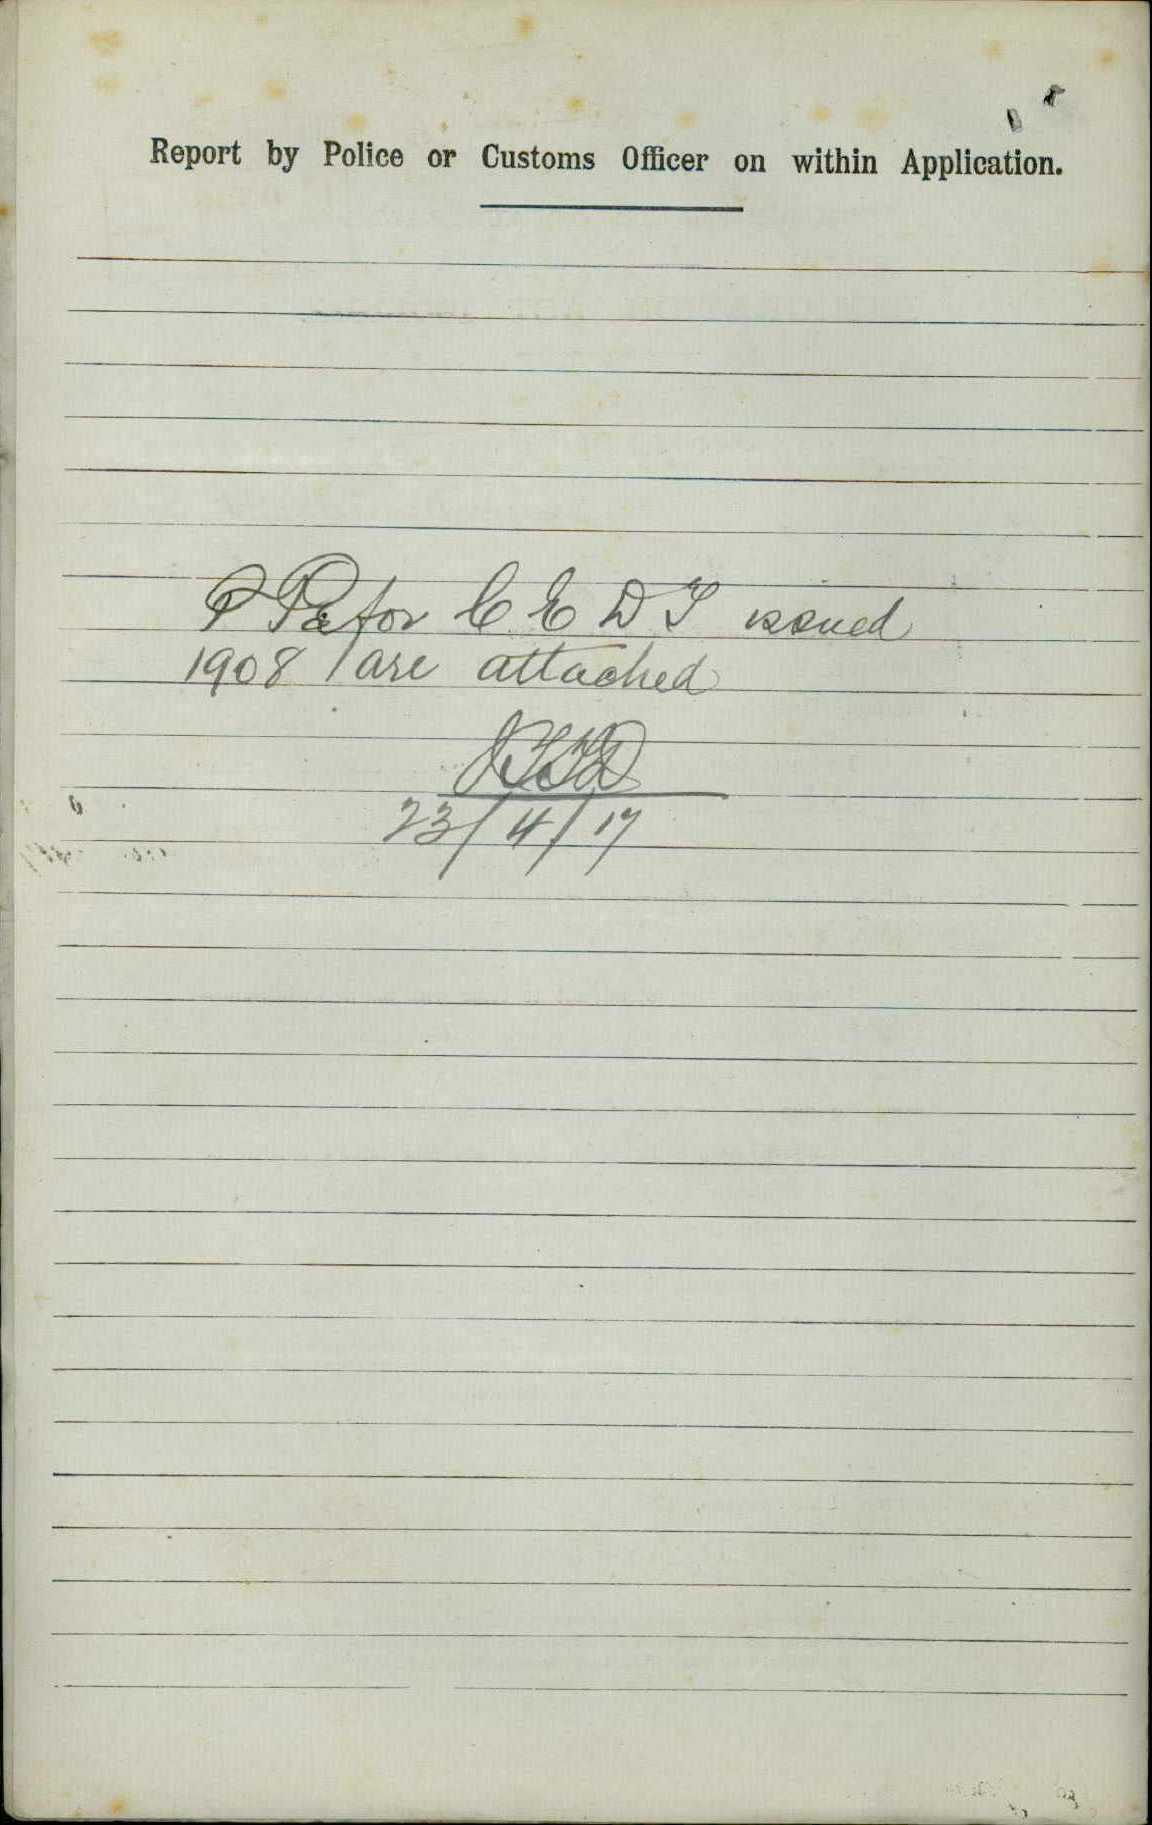 Report by Police or Customs Officer on within Application.
P Ps for C E D T issued
1908 are attached
23/4/17